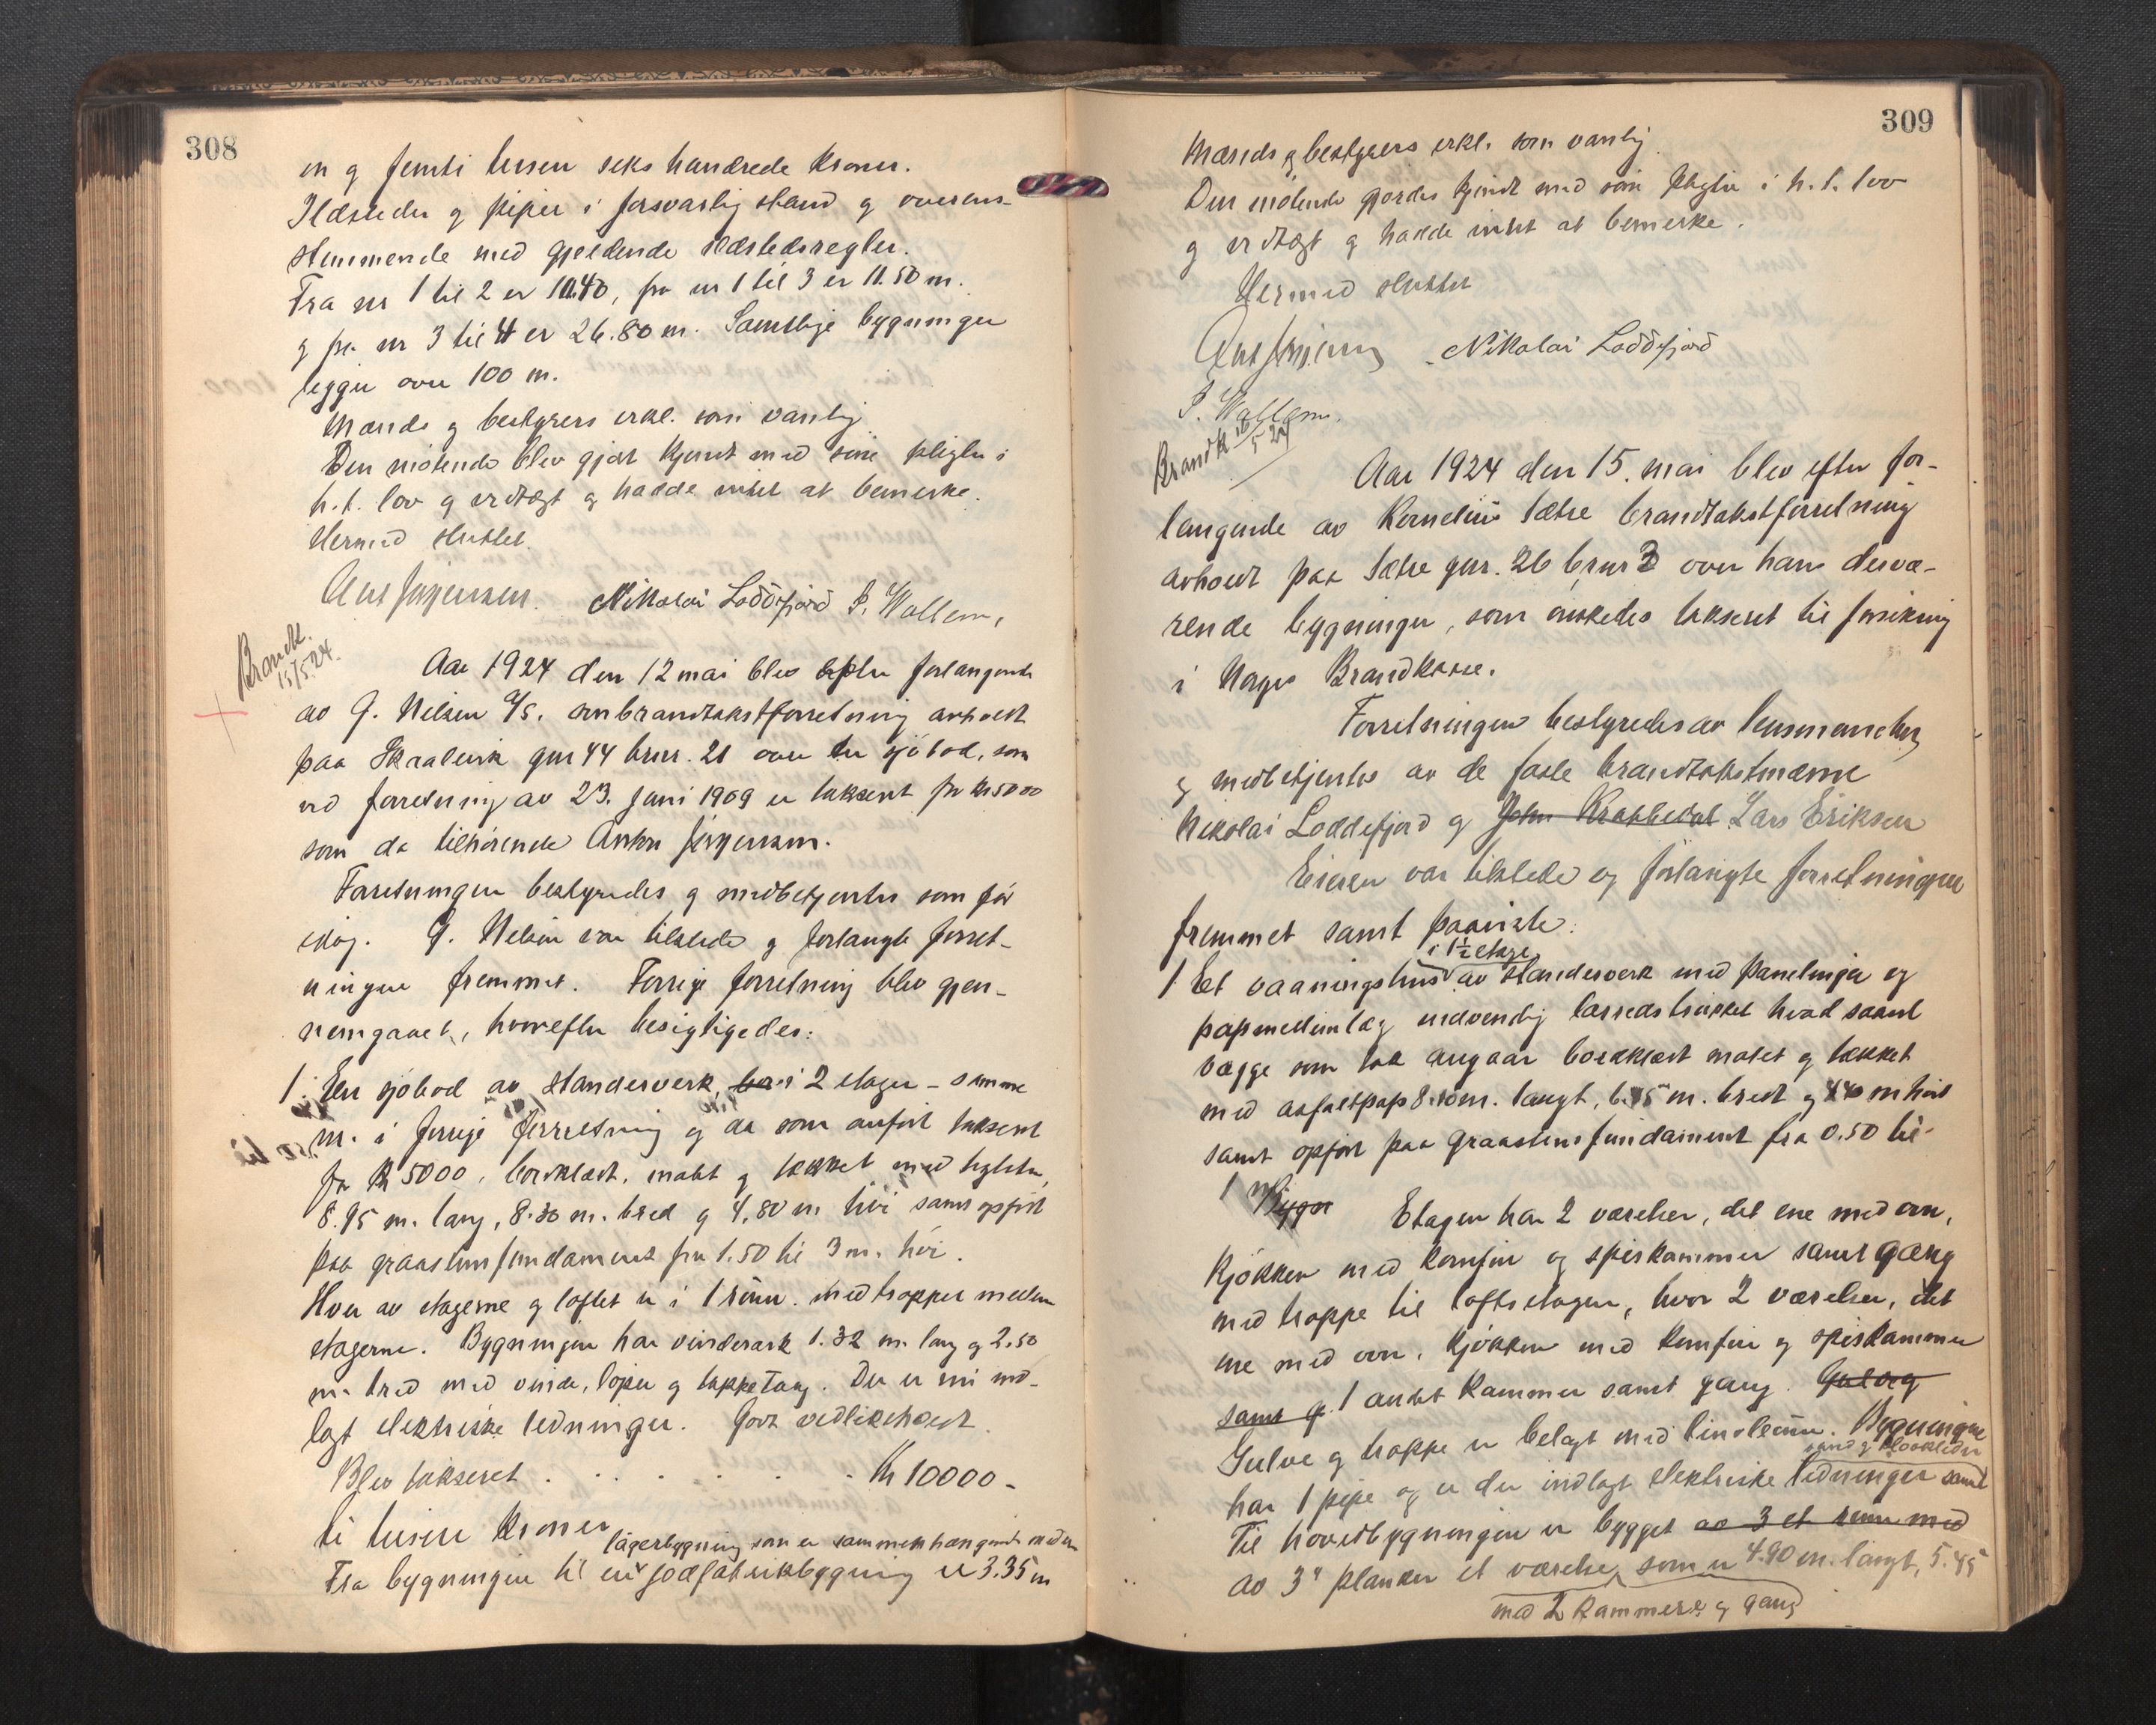 308
en og femti tusen seks hundrede kroner.
Ildsteder og piper i forsvarlig stand og overens-
stemmende med gjeldende ildstedsregler.
Fra nr 1 til 2 er 10.40, fra nr 1 til 3 er 11.50 m.
og fra nr 3 til 4 er 26.80 m. Samtlige bygninger
ligger over 100 m.
Mænds og bestyrers erkl. som vanlig
Den møtende blev gjort kjent med sine pligter i
h.t. lov og vedtægt og hadde intet at bemerke.
Hermed sluttet.
Ant Jørgensen. Nikolai Loddefjord P. Wallem,
Brandk. 15/5.24.
Aar 1924 den 12 mai blev efter forlangende
av G. Nelsen A/S. ombrandtakstforretning avholdt
paa gnr 44 brnr. 21 over en sjöbod, som
ved forretning av 23. juni 1909 er taksert for kr 5000
som da tilhørende Anton Jørgensen.
Forretningen bestyredes og medbetjentes som før
idag. G. Nelsen var tilstede og forlangte forret-
ningen fremmet. Forrige forretning blev gjen-
nemgaaet, hvorefter besigtigedes:
1. En sjöbod av standerverk, i 2 etager - samme
nr. i forrige forretning og da som anført taksert
for kr 5000, bordklædt, malt og tækket med taglsten,
8.95 m. lang, 8.30 m. bred og 4,80 m höi samt opført
paa graastensfundament fra 1.50 til 3 m. höi.
Hver av etagerne og loftet er i 1 rum. med trapper mellem
etagerne. Bygningen har vinderark 1.32 m. lang og 2.50
m. bred med vinde, löper og takketang. Der er ind-
lagt elektriske ledninger. Godt vedlikeholdt
Blev takseret . . . . . . . Kr 10000 -
ti tusen kroner
lagerbygning som er sammenhængende med en
Fra bygningen til en sodfabrikbygning er 3.35 m
309
Mænds og bestyrers erkl. som vanlig
Den møtende gjordes kjendt med sine pligter i h.t. lov
og vedtægt og hadde intet at bemerke.
Hermed sluttet
Ant Jørgensen Nikolai Loddefjord
P. Wallem.
Brandk 16/5 24
Aar 1924 den 15. mai blev efter for-
langende av Kornelius Sætre brandtakstforretning
avholdt paa Sætre gnr. 26 brnr 3 over hans dervæ-
rende bygninger, som önskedes takseret til forsikring
i Norges Brandkasse.
Forretningen bestyredes av lensmanden,
og medbetjentes av de faste brandtakstmænd
Nikolai Loddefjord og John Krabbedal Lars Eriksen
Eieren var tilstede og forlangte forretningen
fremmet samt paaviste:
i 1½ etage
1 Et vaaningshus av standerverk med panelinger og
papmedimlæg indvendig lærredstrukket hvad saavel
vægge som tak angaar bordklædt malet og tækket
med asfaltpap 8.10 m. langt, 6.75 m. bredt og 4.40 m höit
samt opført paa graastensfundament fra 0.50 til
1 m Bygn Etagen har 2 værelser, det ene med ovn,
kjökken med komfur og spiskammer samt gang
med trappe til loftsetagen, hvor 2 værelser, det
ene med ovn, kjökken med komfur og spiskammer
samt g 1 andet kammer samt gang. Gulvog
Gulve og trappe er belagt med linoleum. Bygningen
vand og kloakleda
har 1 pipe og er der indlagt elektriske ledninger samt
Til hovedbygningen er bygget av 3 et rum med
av 3" planker et værelse, som er 4.90 m. langt, 5.45
med 2 kammerse og gang